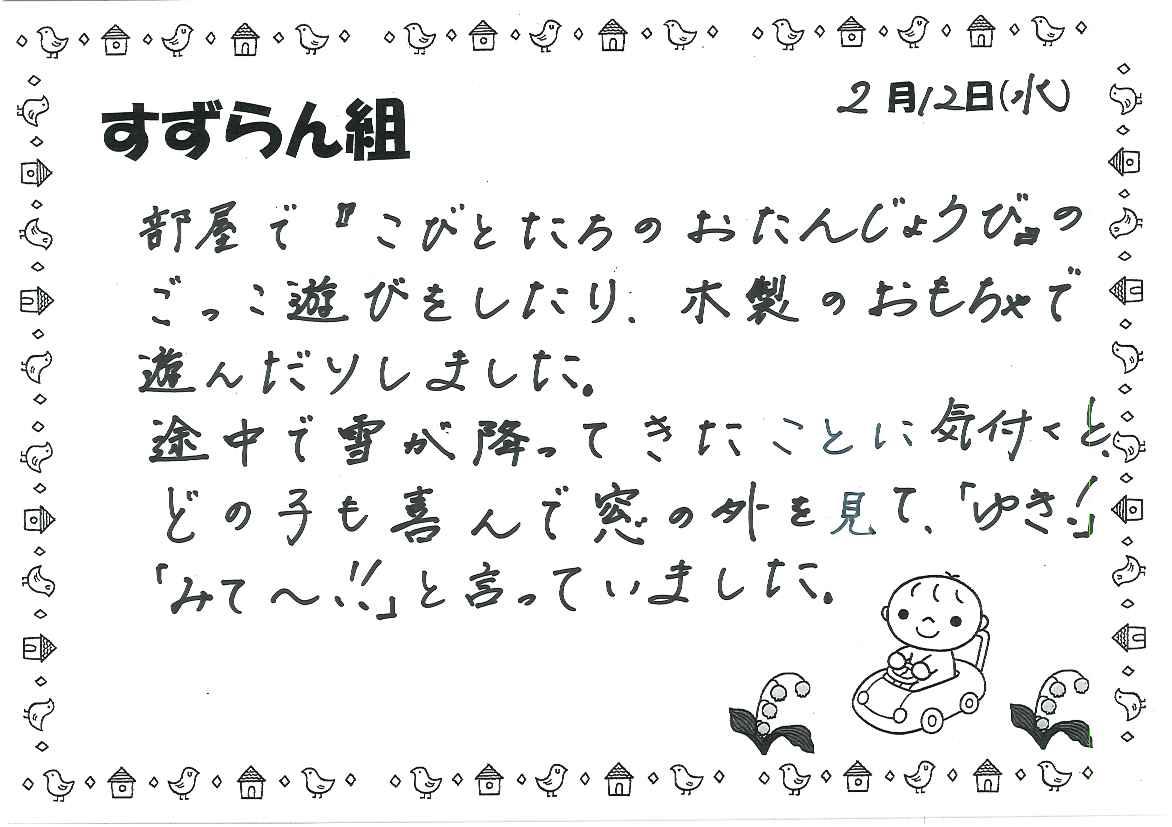 2月12日(水)
すずらん組
部屋で『こびとたちのおたんじょうび』の
ごっこ遊びをしたり、木製のおもちゃで
遊んだりしました。
途中で雪が降ってきたことに気付くと、
どの子も喜んで窓の外を見て、「ゆき!」
「みて〜!!」と言っていました。